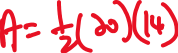 A = 1/2 (20)(14)